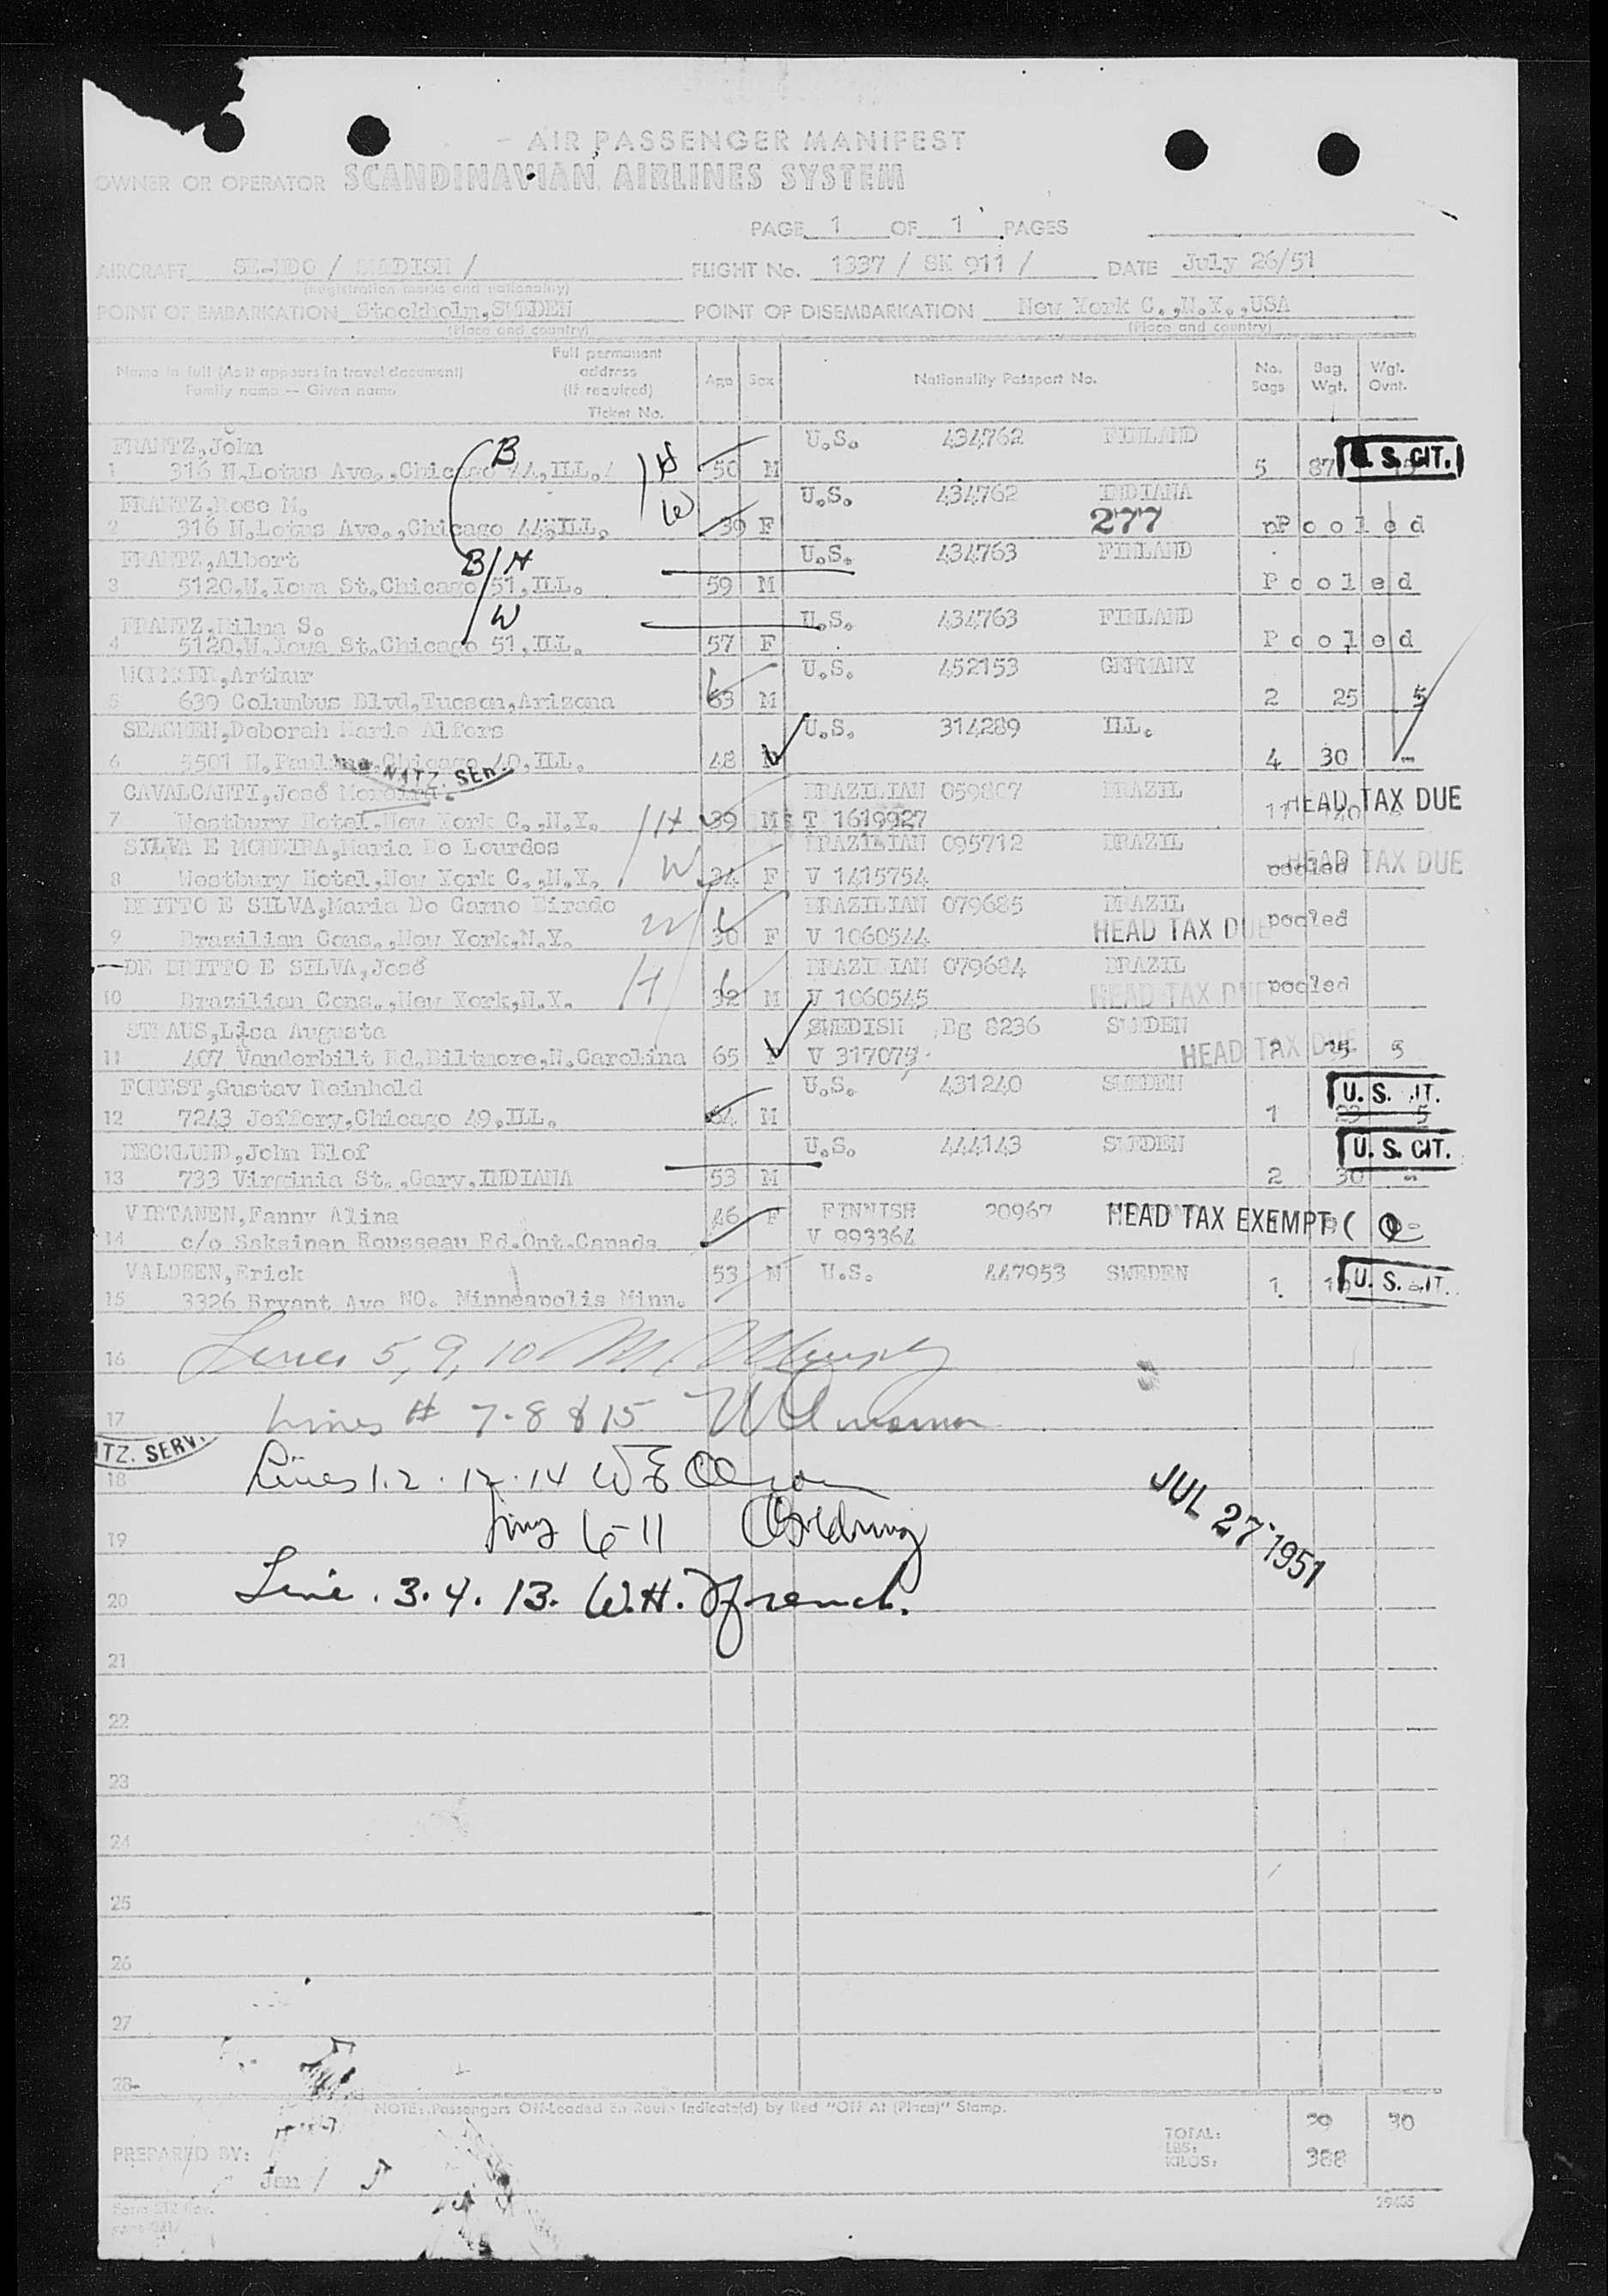 AIR PASSENGER MANIFEST
OWNER OR OPERATOR SCANDINAVIAN AIRLINES SYSTEM
PAGE 1 OF 1 PAGES
AIRCRAFT SE-BDO / SWEDISH / FLIGHT No. 1337 / SK 911 / DATE July 26/51
(Registration marks and nationality)
POINT OF EMBARKATION Stockholm,SWEDEN POINT OF DISEMBARKATION New York C.,N.Y.,USA
(Place and country) (Place and country)
Name in full (As it appears in travel document) Family name -- Given name Full permanent address (If required) Ticket No. Age Sex Nationality Passport No. No. Bags Bag Wgt. Wgt. Ovnt.
FRANTZ,John B U.S. 434762 FINLAND
1 316 N.Lotus Ave.,Chicago 44,ILL. H 50 M 5 87 U. S. CIT.
FRANTZ,Rose M. W U.S. 434762 INDIANA
2 316 N.Lotus Ave.,Chicago 44,ILL. 39 F 277 Pooled
FRANTZ,Albert B/H U.S. 434763 FINLAND
3 5120,W.Iowa St.Chicago 51,ILL. 59 M Pooled
FRANTZ,Hilma S. W U.S. 434763 FINLAND
4 5120,W.Iowa St.Chicago 51,ILL. 57 F Pooled
Arthur U.S. 452153 GERMANY
5 639 Columbus Blvd,Tucson,Arizona 63 M 2 25 5
SEAGREN,Deborah Marie Alfors U.S. 314289 ILL.
6 5501 N.Paulina,Chicago 40,ILL. 48 4 30 -
NATZ. SER.
CAVALCANTI,José Moreira. BRAZILIAN 059807 BRAZIL
7 Westbury Hotel,New York C.,N.Y. H 39 M T 1619927 11 HEAD TAX DUE
SILVA E MOREIRA,Maria De Lourdes BRAZILIAN 095712 BRAZIL
8 Westbury Hotel,New York C.,N.Y. W 34 F V 1415754 pooled HEAD TAX DUE
BRITTO E SILVA,Maria Do Carmo Dirado BRAZILIAN 079685 BRAZIL
9 Brazilian Cons.,New York,N.Y. W 30 F V 1060544 HEAD TAX DUE pooled
DE BRITTO E SILVA,José BRAZILIAN 079684 BRAZIL
10 Brazilian Cons.,New York,N.Y. H 32 M V 1060545 HEAD TAX DUE pooled
STRAUS,Lisa Augusta SWEDISH Bg 8236 SWEDEN
11 407 Vanderbilt Rd.Biltmore,N.Carolina 65 F V 317075 HEAD TAX DUE 5
FOREST,Gustav Reinhold U.S. 431240 SWEDEN
12 7243 Jeffery,Chicago 49,ILL. 54 M 1 23 5 U. S. CIT.
BECKLUND,John Elof U.S. 444143 SWEDEN
13 733 Virginia St.,Gary,INDIANA 53 M 2 30 - U. S. CIT.
VIRTANEN,Fanny Alina 46 F FINNISH 20967 HEAD TAX EXEMPT (
14 c/o Saksinen Rousseau Rd.Ont.Canada V 993364
VALDEEN,Erick 53 M U.S. 447953 SWEDEN
15 3326 Bryant Ave NO. Minneapolis Minn. 1 U. S. CIT.
16 Lines 5, 9, 10 M. Murphy
17 Lines # 7-8 & 15
NATZ. SERV.
18 Lines 1.2.12.14 W E Olson
19 Lines 6-11 Goldring
JUL 27 1951
20 Line . 3. 4. 13. W.H. French.
21
22
23
24
25
26
27
28
NOTE: Passengers Off-Loaded En Route Indicate(d) by Red "Off At (Place)" Stamp.
TOTAL: 29 30
LBS:
KILOS: 388
PREPARED BY:
Jen /
29405